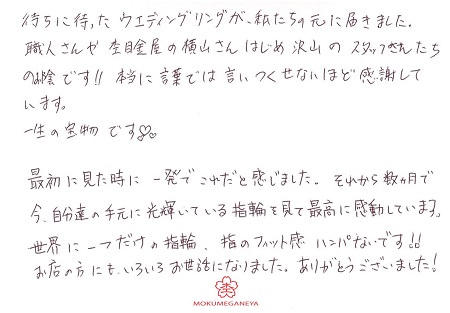 待ちに待ったウエディングリングが、私たちの元に届きました。
職人さんや杢目金屋の横山さんはじめ沢山のスタッフさんたち
のお陰です!! 本当に言葉では言いつくせないほど感謝して
います。
一生の宝物です♡♡
最初に見た時に一発でこれだと感じました。それから数ヵ月で
今、自分達の手元に光輝いている指輪を見て最高に感動しています。
世界に一つだけの指輪、指のフィット感ハンパないです!!
お店の方にも、いろいろお世話になりました。ありがとうございました!
MOKUMEGANEYA